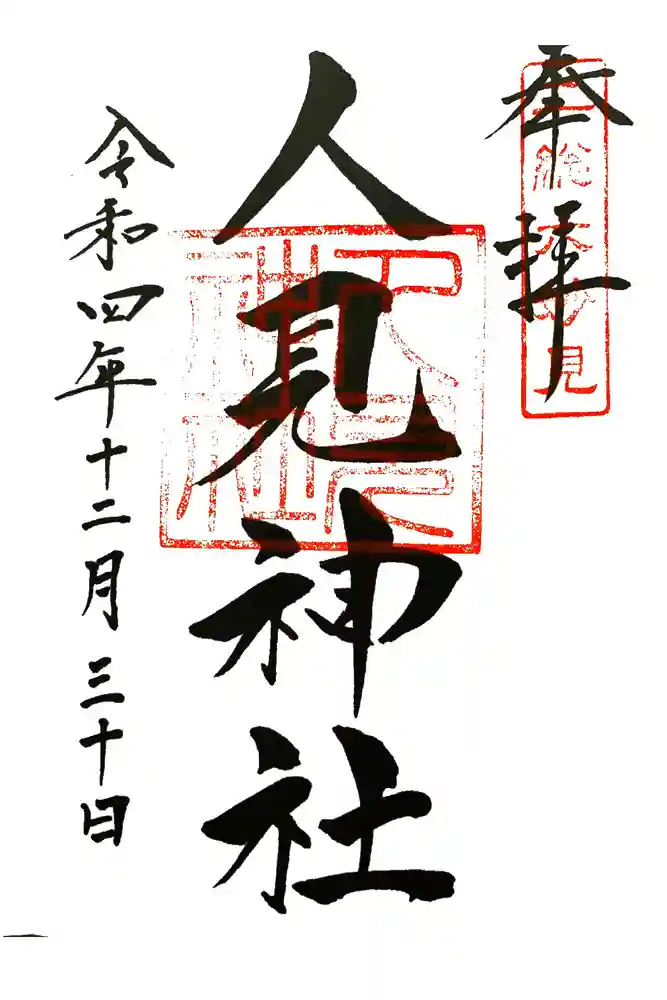 奉拝
二総六妙見
人見神社
人見神社
令和四年十二月三十日